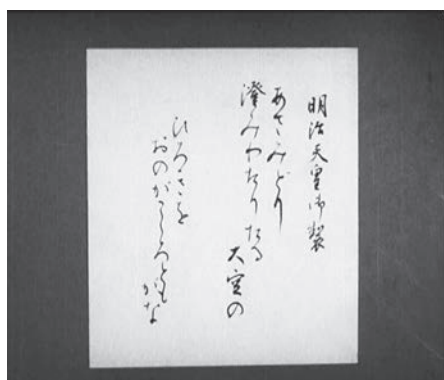 明治天皇御製
あさみどり
澄みわたりたる大空の
ひろきを
おのがこゝろともがな